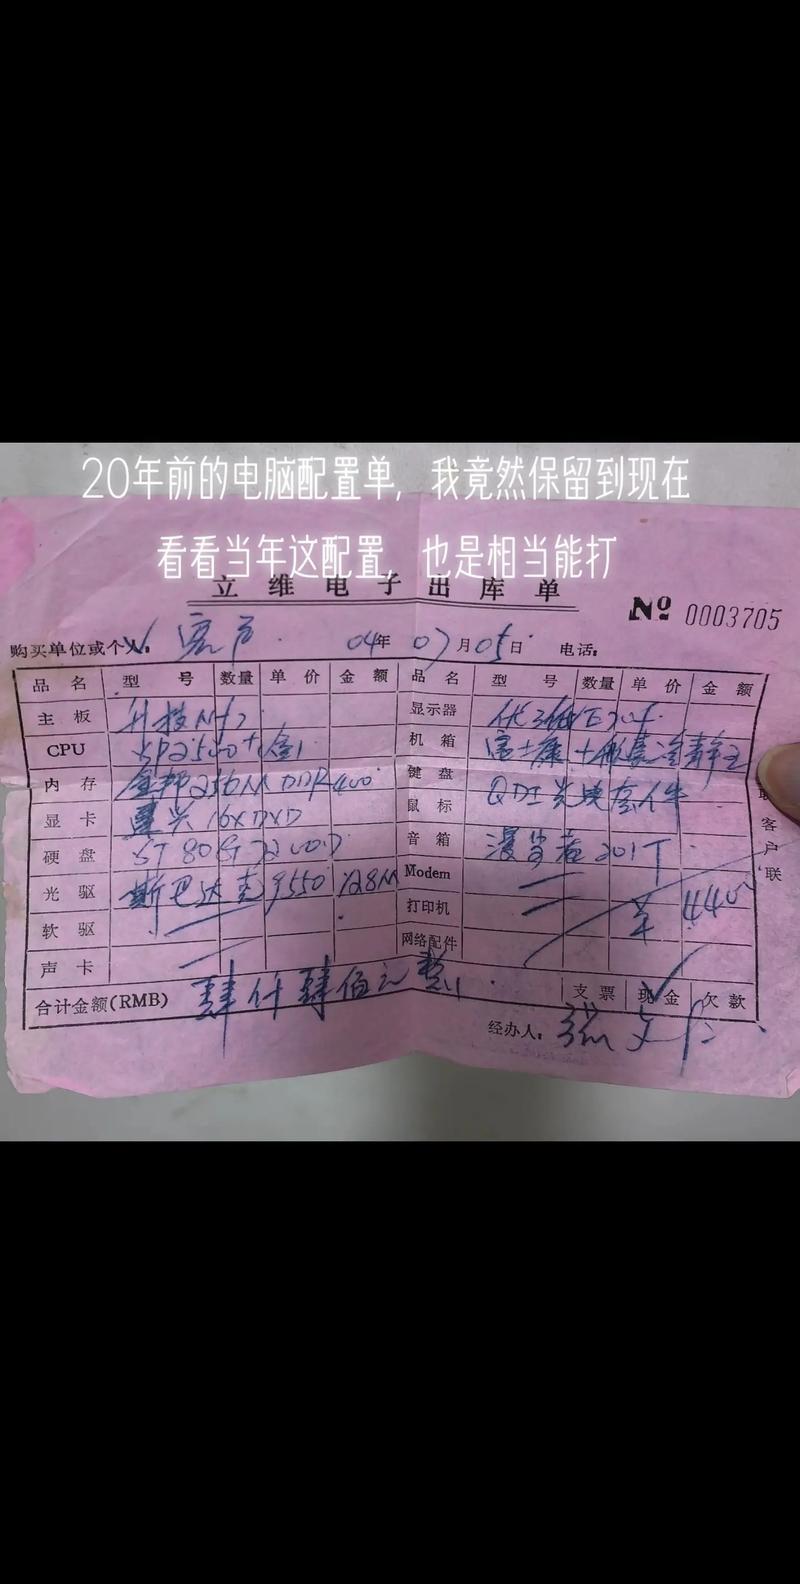 20年前的电脑配置单，我竟然保留到现在
看看当年这配置，也是相当能打
立维电子出库单
№ 0003705
购买单位或个人： 客户 04年07月05日 电话：
品名 型号 数量 单价 金额 品名 型号 数量 单价 金额
主板 升技NF7 显示器
CPU SP2500+ 机箱 富士康
内存 金邦256M DDR400 键盘 QDI 光电套件
显卡 16XDVD 鼠标
硬盘 ST 80G 7200 音箱 漫步者201T
光驱 斯巴达克9550 128M Modem
软驱 打印机 4400
声卡 网络配件
合计金额(RMB) 肆仟肆佰元整 支票 现金 欠款
经办人： 张文
客户联